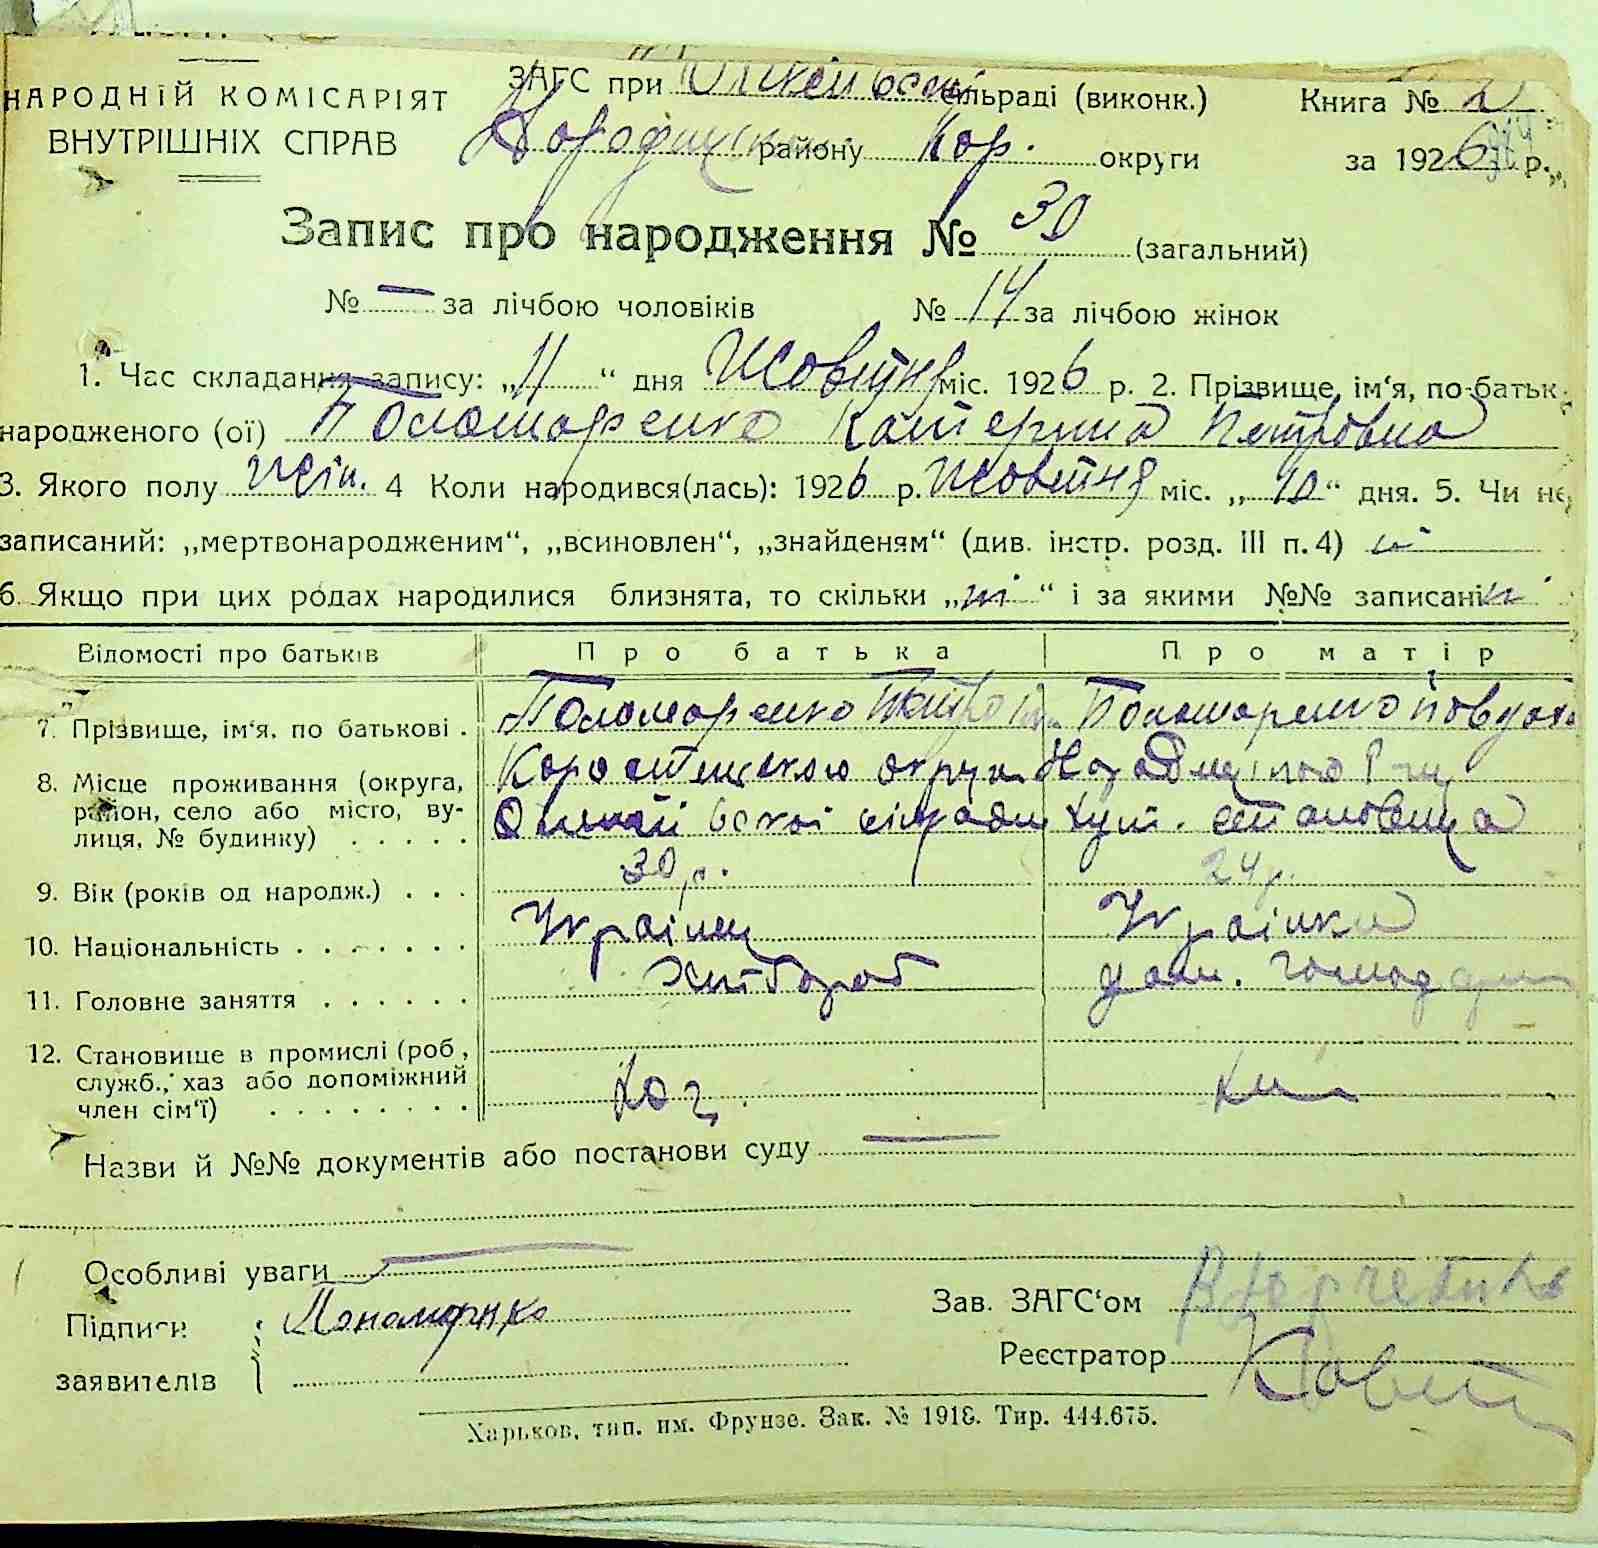 НАРОДНІЙ КОМІСАРІЯТ
ВНУТРІШНІХ СПРАВ
ЗАГС при сільраді (виконк.) Книга № 2
району Кор. округи за 1926 р.
Запис про народження № 30 (загальний)
№ — за лічбою чоловіків № 14 за лічбою жінок
1. Час складання запису: „11“ дня Жовтня міс. 1926 р. 2. Прізвище, ім‘я, по батьк.
народженого (ої) Пономаренко Катерина Петровна
3. Якого полу жін. 4 Коли народився(лась): 1926 р. Жовтня міс. „10“ дня. 5. Чи не
записаний: „мертвонародженим“, „всиновлен“, „знайденям“ (див. інстр. розд. III п. 4) ні
6. Якщо при цих родах народилися близнята, то скільки „ні“ і за якими №№ записані ні
Відомості про батьків Про батька Про матір
7. Прізвище, ім‘я, по батькові . Пономаренко Петро Пономаренко
8. Місце проживання (округа, Коростенською округи
район, село або місто, ву- сільради хут. Становища
лиця, № будинку) . . . . .
9. Вік (років од народж.) . . . 30 р. 24 р.
10. Національність . . . . . . . Українец Українка
11. Головне заняття . . . . . . Хлібороб дом. господарка
12. Становище в промислі (роб.,
служб., хаз або допоміжний
член сім‘ї) . . . . . . . .
Назви й №№ документів або постанови суду —
Особливі уваги —
Підписи Пономаренко Зав. ЗАГС‘ом
заявителів Реєстратор
Харьков, тип. им. Фрунзе. Зак. № 1918. Тир. 444.675.